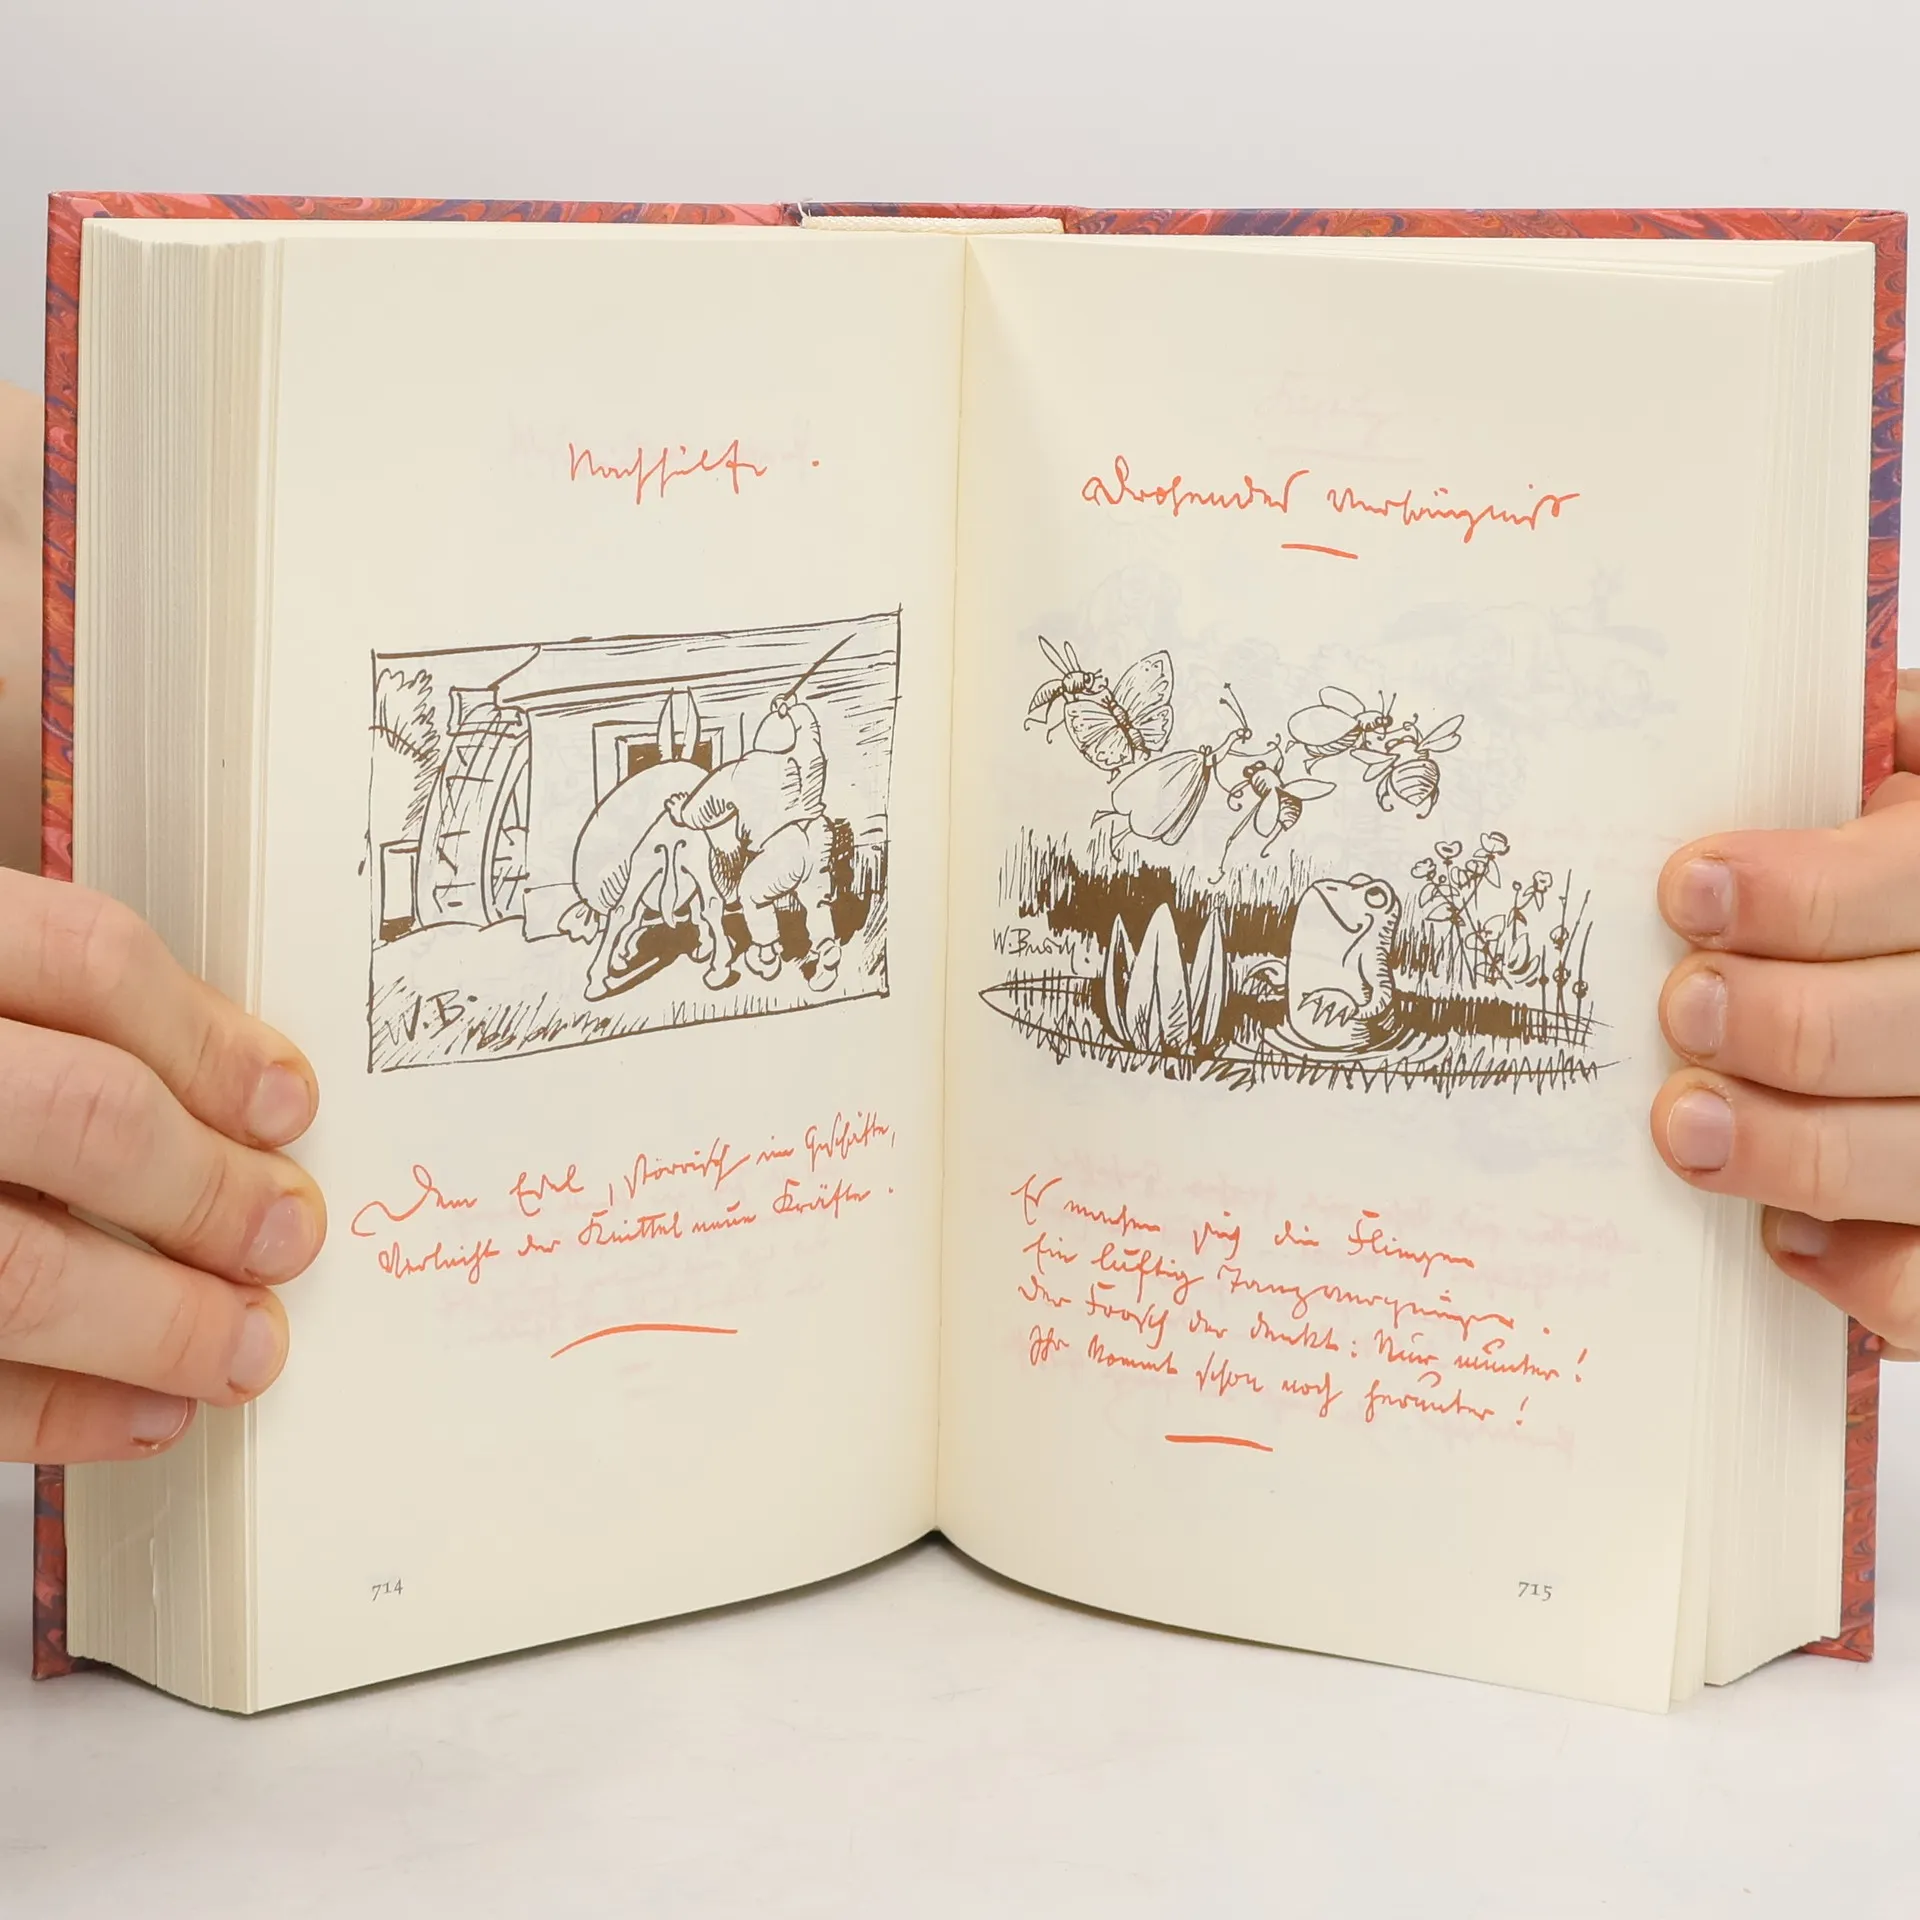 Nachhülfe.
W.B.
Dem Esel, störrisch im Geschäfte,
Verleiht der Knittel neue Kräfte.
714
Drohendes Verhängniß
W. Busch!
Es machen sich die Fliegen
Ein luftig Tanzvergnügen.
Der Frosch der denkt: Nur munter!
Ihr kommt schon noch herunter!
715